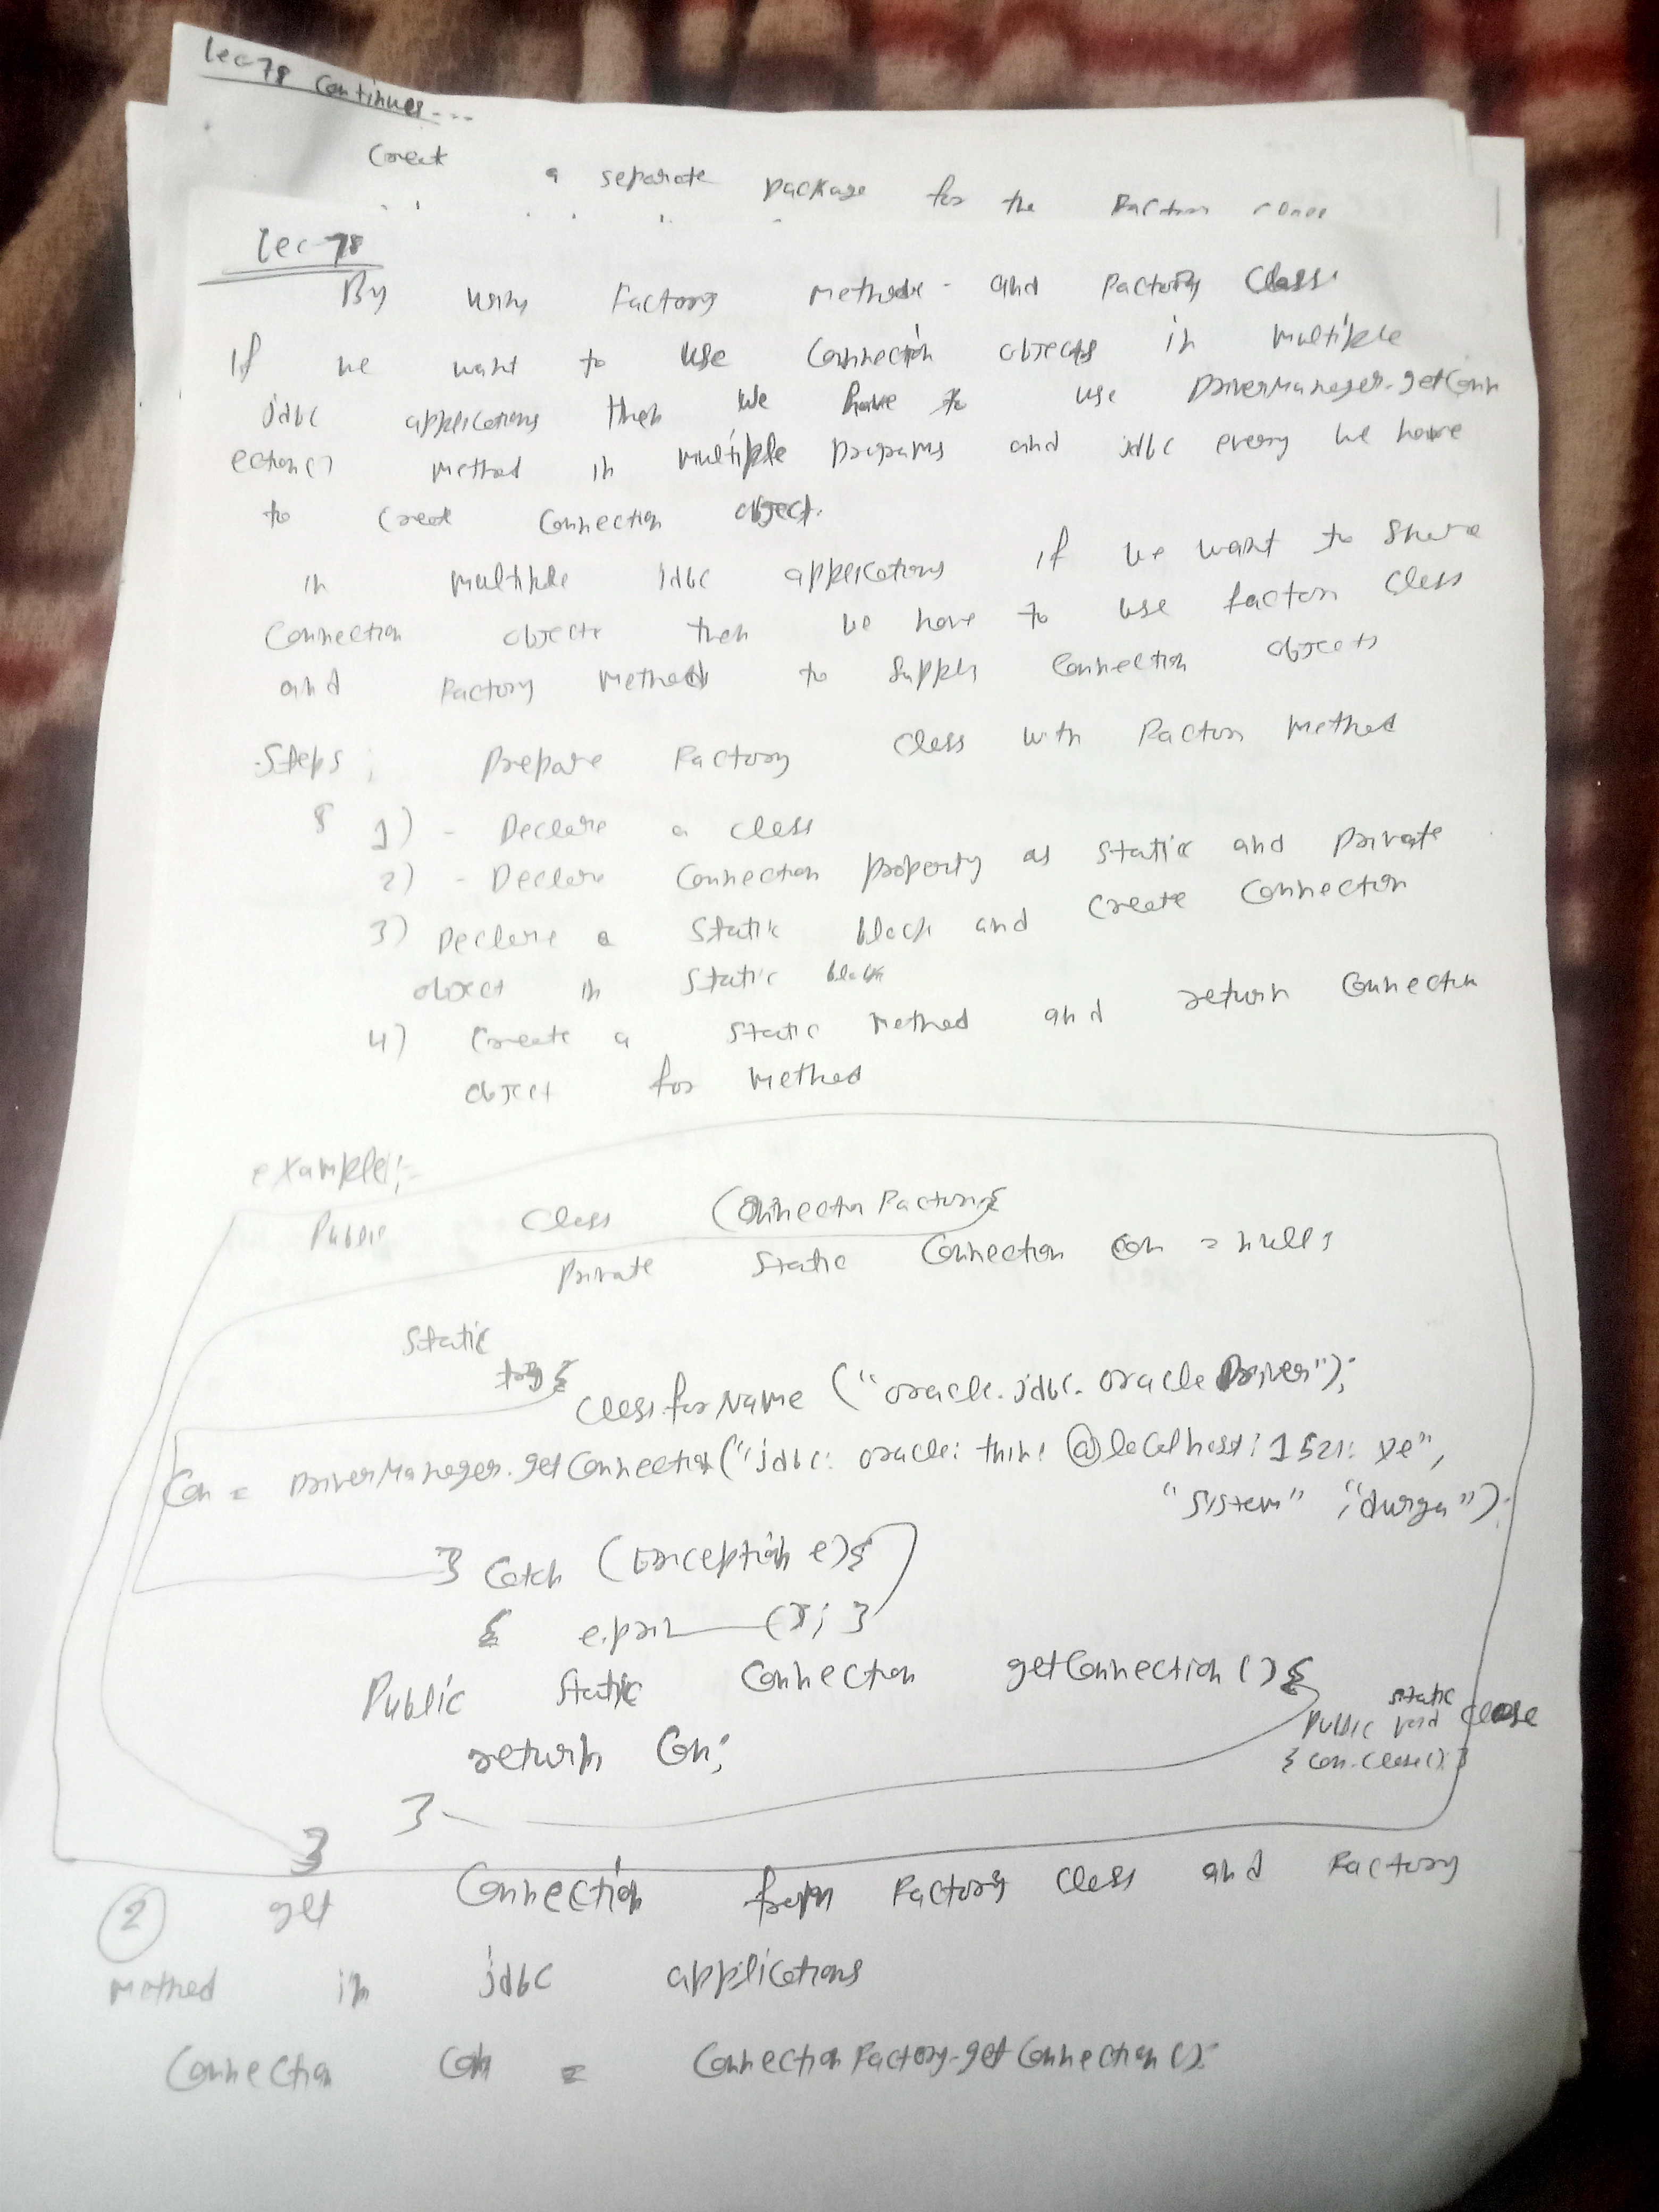 Lec-78 Continues...
Create a separate package for the
Lec-78
By using Factory Methods - and Factory Class
If we want to use Connection objects in multiple
jdbc applications then we have to use DriverManager.getConn
ection() method in multiple programs and jdbc every we have
to create Connection object.
in multiple jdbc applications if we want to share
Connection objects then we have to use factory class
and Factory Methods to supply Connection objects
Steps: Prepare Factory class with Factory Method
1) - Declare a class
2) - Declare Connection property as static and private
3) Declare a static block and create Connection
object in static block
4) Create a static method and return Connection
object for method
example:-
Public Class Connection Factory{
Private Static Connection con = null;
Static
try {
Class.forName ("oracle.jdbc.oracleDriver");
Con = DriverManager.getConnection("jdbc: oracle: thin: @localhost:1521: xe",
"system", "durga");
} Catch (Exception e){
{ e.pri (); }
Public Static Connection getConnection () {
static
Public void close
return Con;
{ con.close() }
}
}
2 get Connection from Factory Class and Factory
Method in jdbc applications
Connection Con = Connection Factory.getConnection();